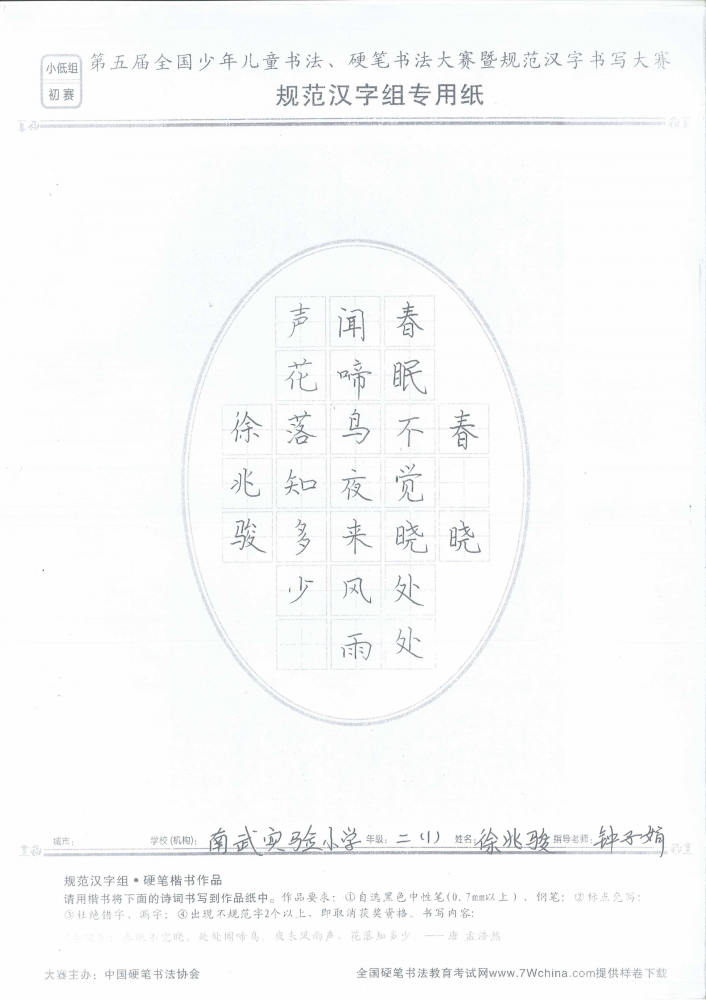 小低组
初赛
第五届全国少年儿童书法、硬笔书法大赛暨规范汉字书写大赛
规范汉字组专用纸
春晓
春眠不觉晓处处
闻啼鸟夜来风雨
声花落知多少
徐兆骏
城市： 学校(机构)：南武实验小学 年级：二(1) 姓名：徐兆骏 指导老师：钟子娟
规范汉字组•硬笔楷书作品
请用楷书将下面的诗词书写到作品纸中。作品要求：①自选黑色中性笔(0.7mm以上)、钢笔；②标点免写；
③杜绝错字、漏字；④出现不规范字2个以上，即取消获奖资格。书写内容：
春眠不觉晓，处处闻啼鸟。夜来风雨声，花落知多少。——唐 孟浩然
大赛主办：中国硬笔书法协会 全国硬笔书法教育考试网www.7Wchina.com提供样卷下载